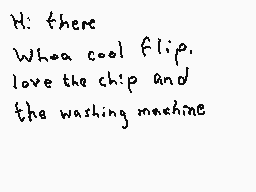 Hi there
Whoa cool flip.
love the chip and
the washing machine